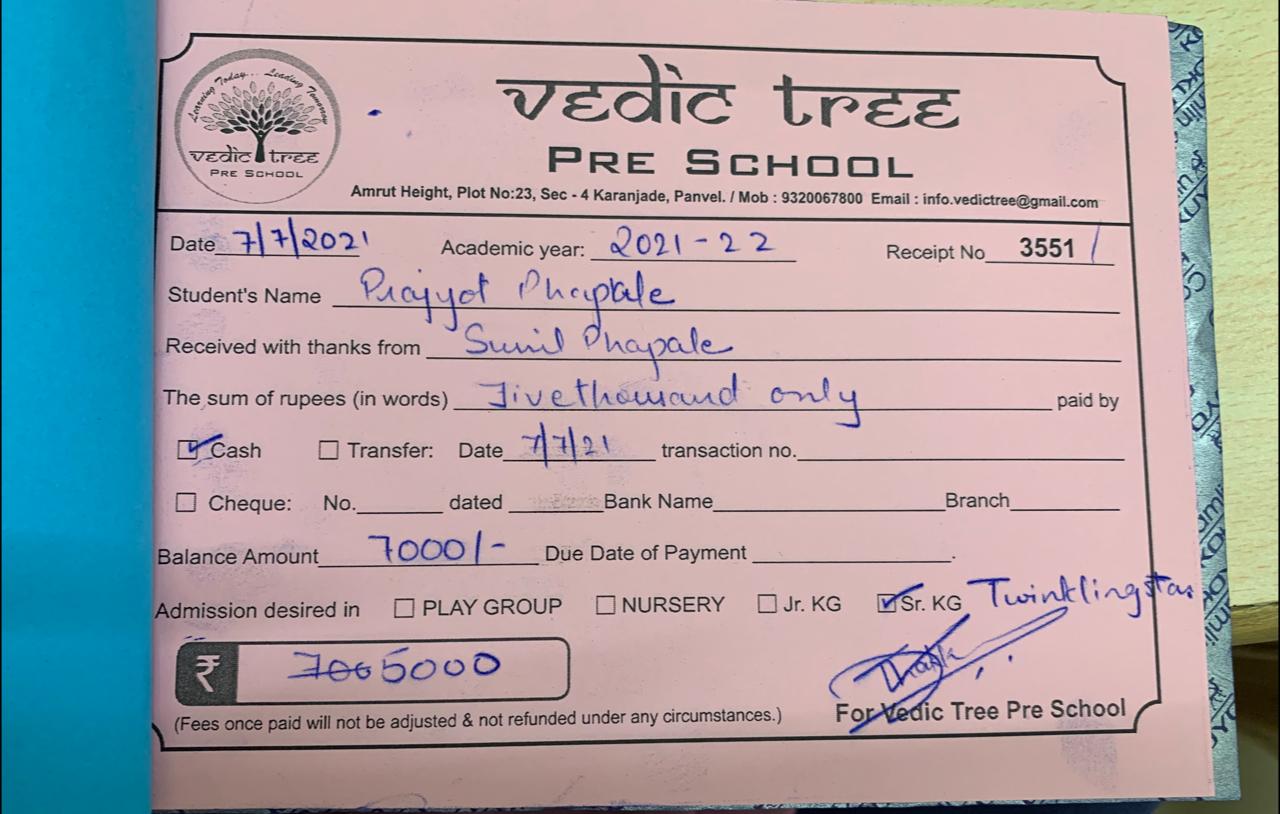 Learning Today... Leading Tomorrow
vedic tree
PRE SCHOOL
vedic tree
PRE SCHOOL
Amrut Height, Plot No:23, Sec - 4 Karanjade, Panvel. / Mob : 9320067800 Email : info.vedictree@gmail.com
Date 7/7/2021 Academic year: 2021-22 Receipt No 3551
Student's Name Prajyot Dhapale
Received with thanks from Sunil Dhapale
The sum of rupees (in words) Five thousand only paid by
Cash Transfer: Date 7/7/21 transaction no.
Cheque: No. dated Bank Name Branch
Balance Amount 7000/- Due Date of Payment .
Admission desired in PLAY GROUP NURSERY Jr. KG Sr. KG Twinklingstar
₹ 5000
(Fees once paid will not be adjusted & not refunded under any circumstances.) For Vedic Tree Pre School